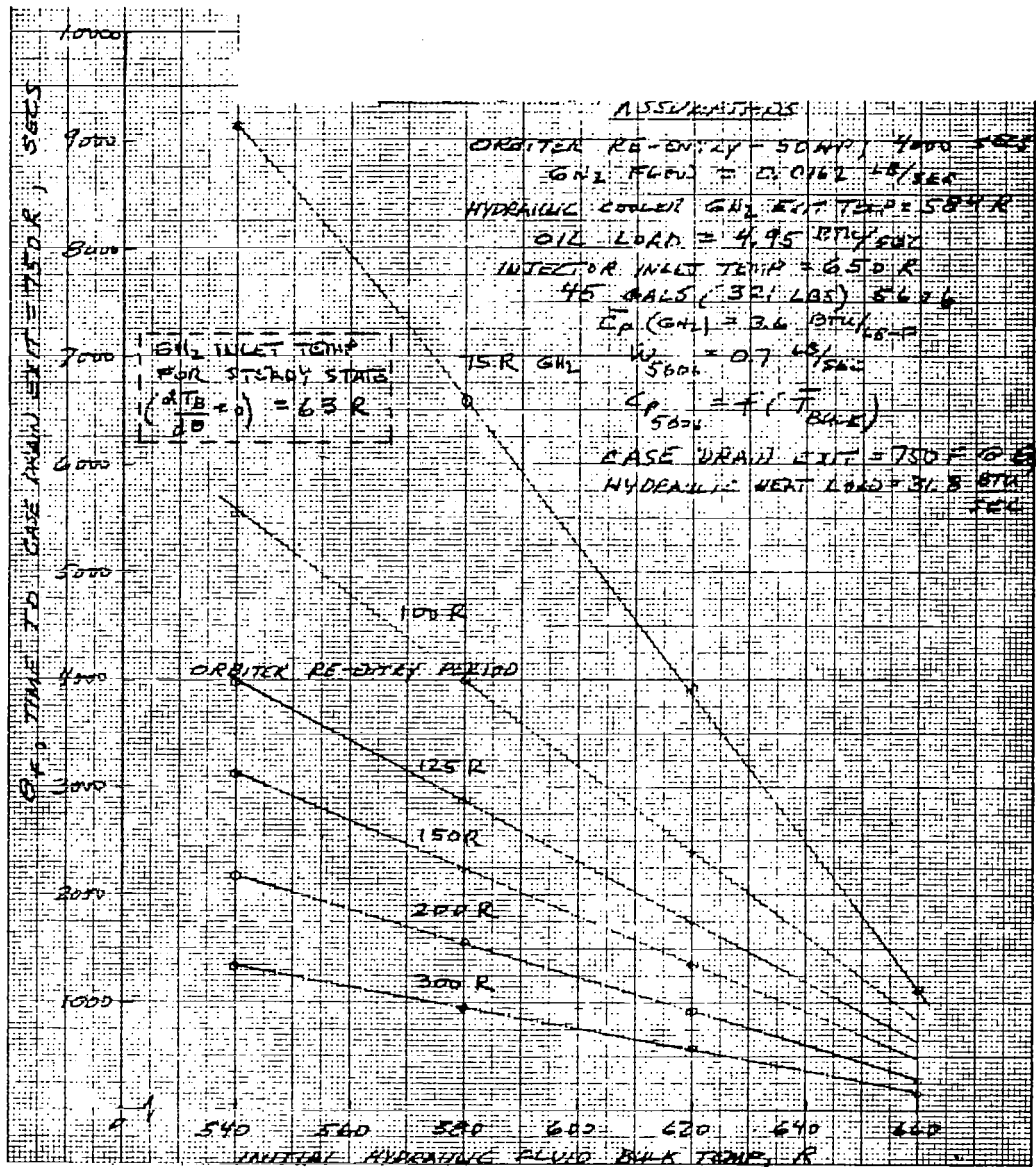 10000
9000
8000
7000
6000
5000
4000
3000
2000
1000
θF, TIME TO CASE DRAIN EXIT = 750 R, SECS
ASSUMPTIONS
ORBITER RE-ENTRY - 50 HP, 4000 SECS
GH2 FLOW = 0.0162 LB/SEC
HYDRAULIC COOLER GH2 EXIT TEMP = 584 R
OIL LOAD = 4.95 BTU/SEC
INJECTOR INLET TEMP = 650 R
45 GALS (321 LBS) 5606
C̄p (GH2) = 3.6 BTU/LB-F
W5606 = 0.7 LB/SEC
Cp5606 = f (T̄BULK)
CASE DRAIN EXIT = 750 F @ θ
HYDRAULIC HEAT LOAD = 31.8 BTU
SEC
GH2 INLET TEMP
FOR STEADY STATE
(dTB/dθ = 0) = 63 R
75 R GH2
100 R
ORBITER RE-ENTRY PERIOD
125 R
150 R
200 R
300 R
0 540 560 580 600 620 640 660
INITIAL HYDRAULIC FLUID BULK TEMP, R